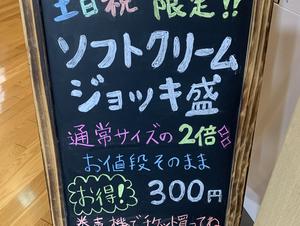 土日祝 限定!!
ソフトクリーム
ジョッキ盛
通常サイズの2倍
お値段そのまま
お得! 300円
券売機でチケット買ってね